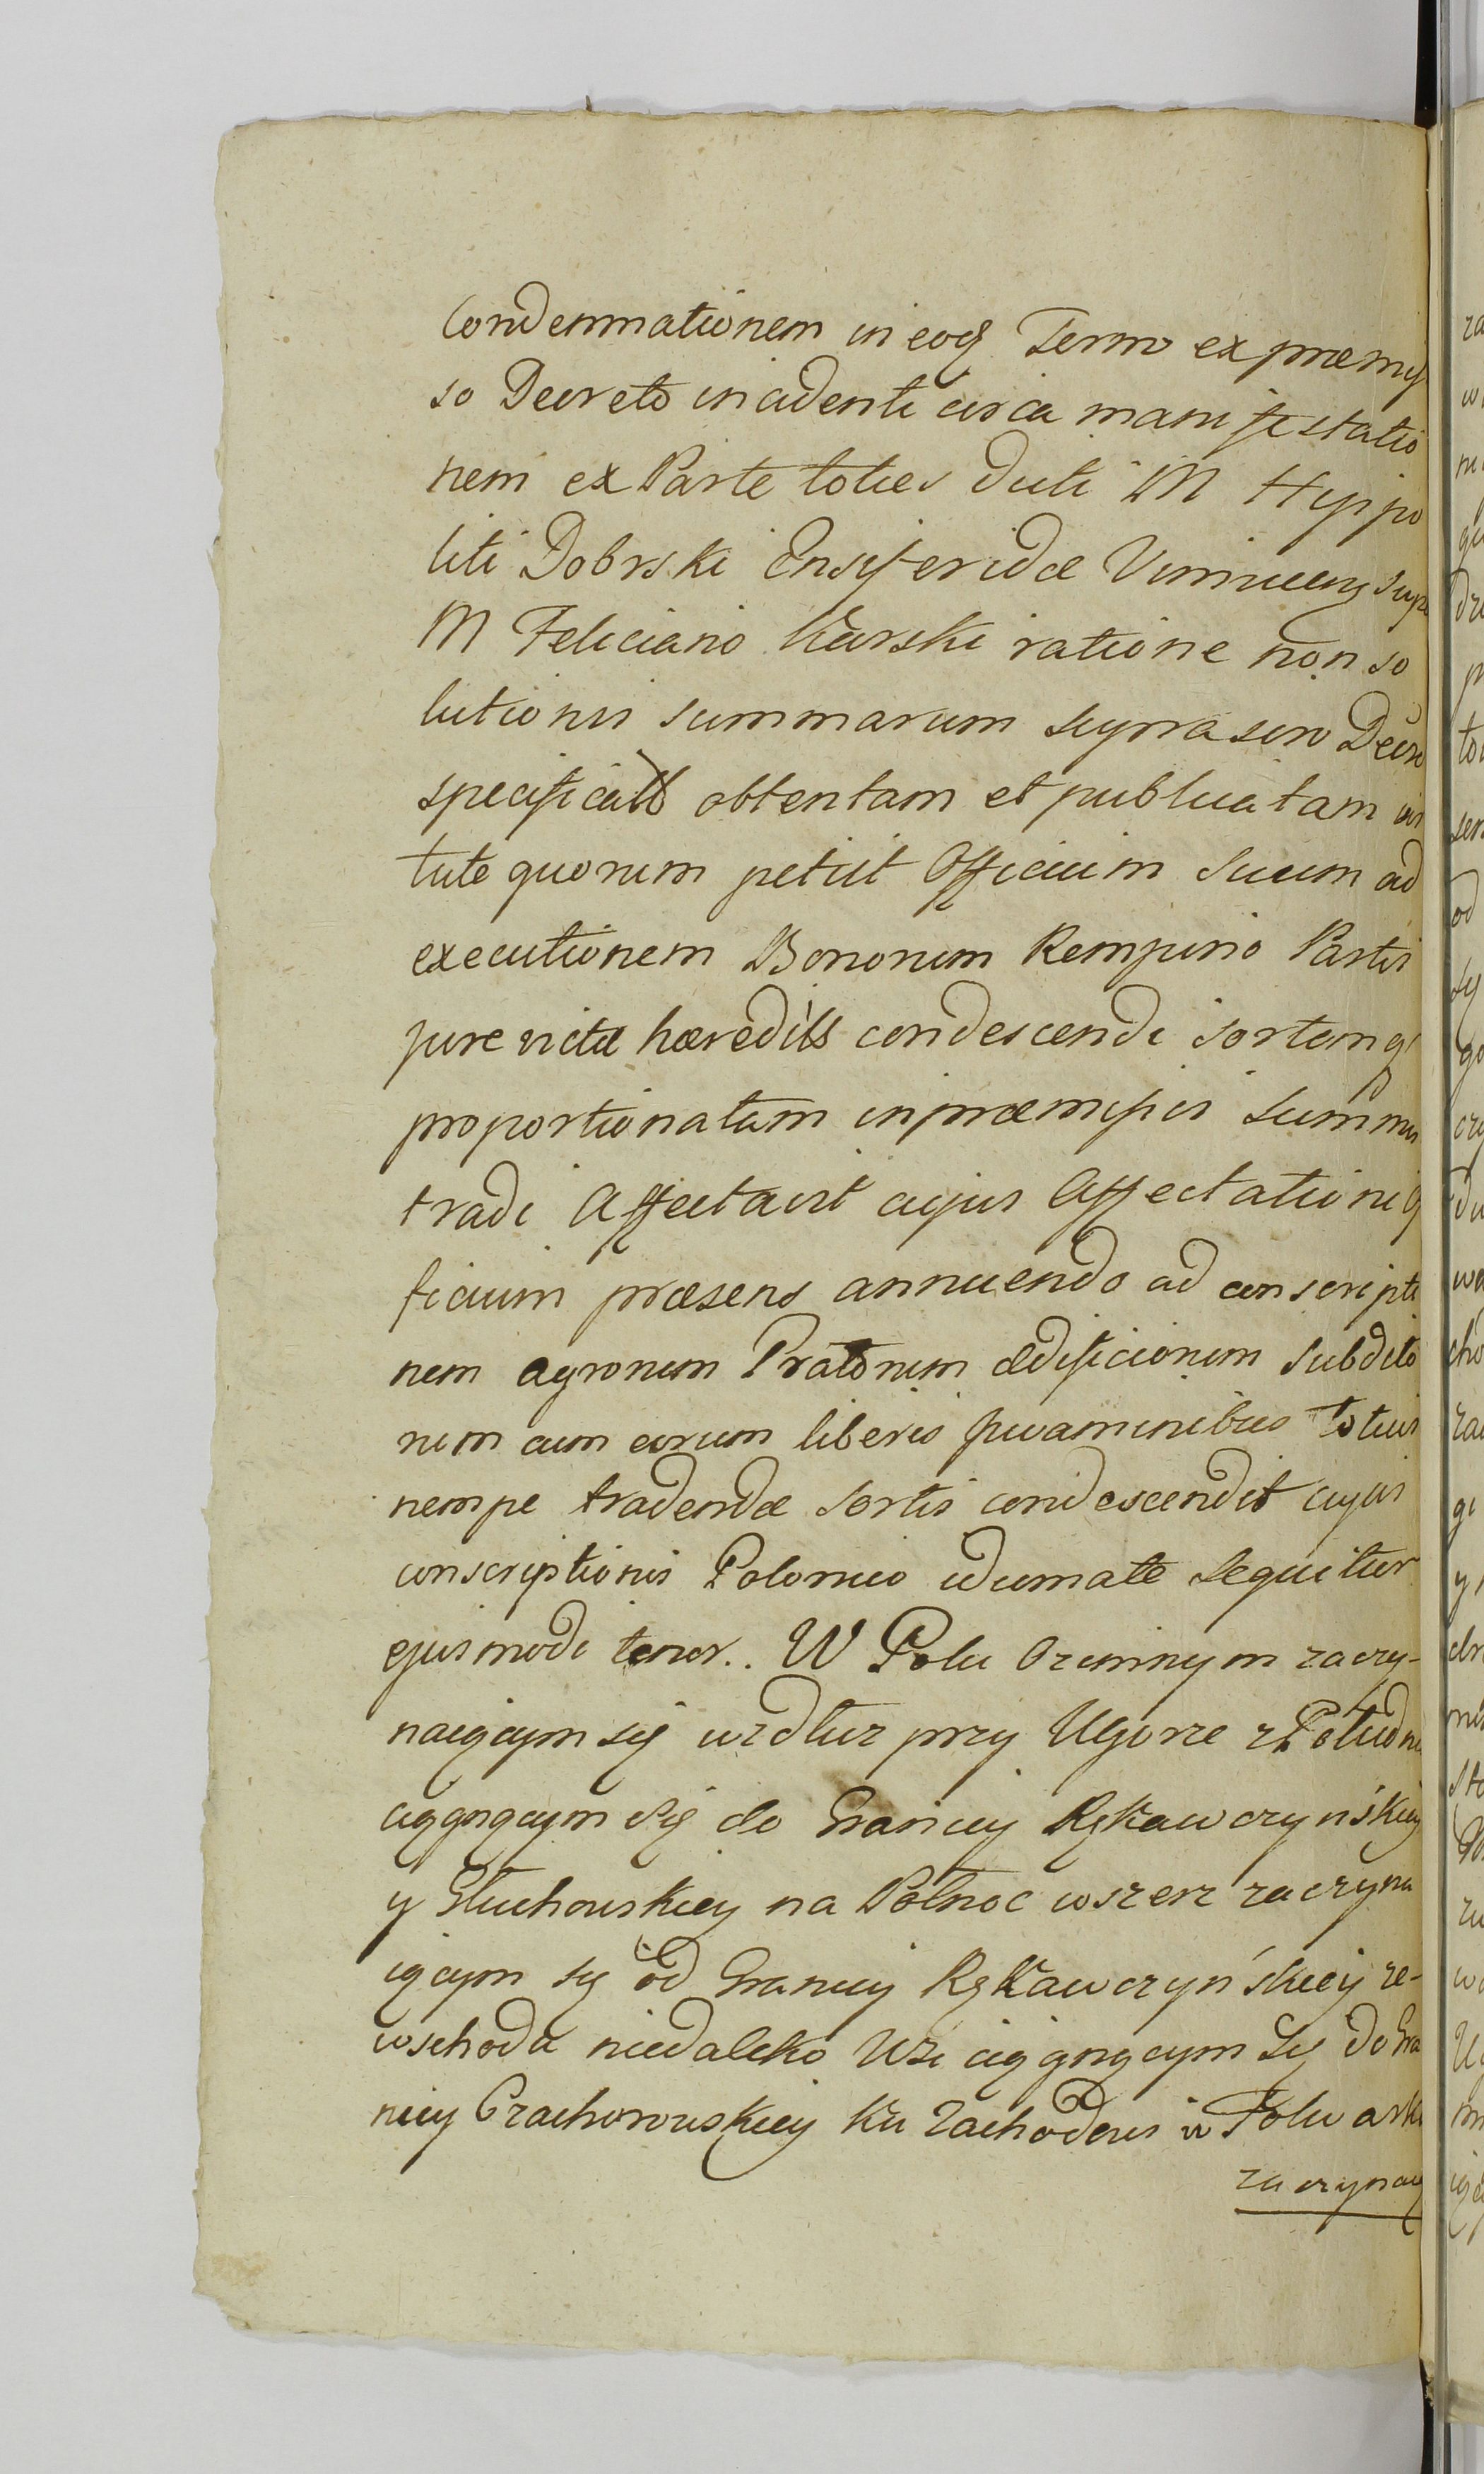 Condemnationem in eoq Termo ex præmis
so Decreto incidenti circa manifestatio
nem ex Parte toties dicti M Hyppo
liti Dobrski Ensiferidæ Viniucens supr
M Feliciano Karski ratione non so
lutionis summarum supra seu Decre
specificatt obtentam et publicatam vir
tute quorum petiit Officium Suum ad
executionem Bonorum Rempino Partis
jure victæ hæreditt condescendi sortemq
proportionatam in præmissis Summis
tradi Affectavit cujus Affectationi Of
ficium præsens annuendo ad conscriptio
nem agrorum Pratorum ædificiorum Subdito
rum cum eorum liberis Juvaminibus totius
nempe tradendæ Sortis condescendit cujus
conscriptionis Polonico idiomate Sequitur
ejusmodi tenor.. W Polu Oziminym zaczy-
naiącym się wzdłuz przy Ugorze z Południa
ciągnącym się do Granicy Rękawczyńskiey
y Głuchowskiey na Połnoc wszerz zaczyna
iącym się od Granicy Rękawczyńskiey ze-
wschodu niedaleko Wsi ciągnącym Się do Gra
nicy Czachorowskiey ku Zachodowi w Folwarku
zaczynaią